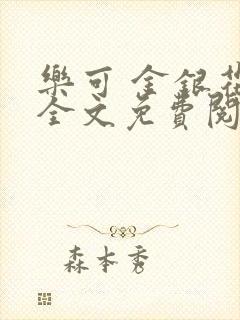 樂可 金銀花
全文免費閱
森本秀